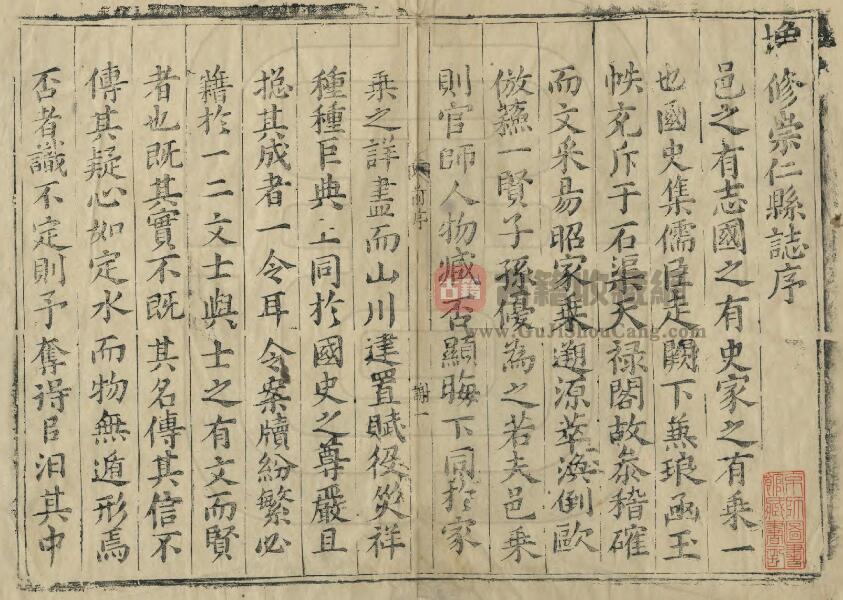 修崇仁縣誌序
邑之有志國之有史家之有乗一
也國史集儒臣走闕下蒐琅凾玉
帙充斥于石渠天禄閣故叅稽確
而文采易昭家乗遡源萃渙倒歐
倣蘓一賢子孫優為之若夫邑乗
則官師人物臧否顯晦下同於家
前序
乗之詳盡而山川建置賦役災祥
種種巨典上同於國史之尊嚴且
揔其成者一令耳令案牘紛繁必
藉於一二文士與士之有文而賢
者也既其實不既其名傳其信不
傳其疑心如定水而物無遁形焉
否者識不定則予奪得㠯汨其中
古籍
www.GuJiShouCang.com